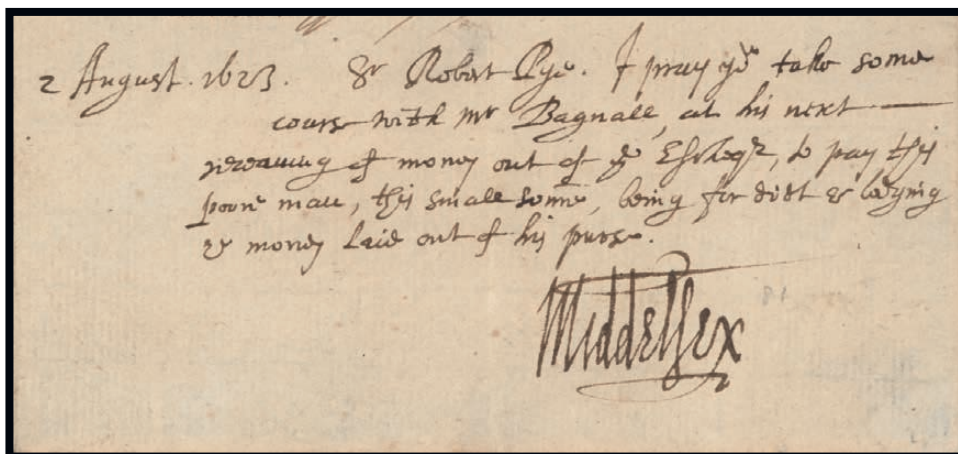 2 August. 1623. Sr Robert Pye. I pray yow take some
course with mr Bagnall, at his next
receauing of money out of ye Excheqr, to pay this
poore man, this small some, being for diet & lodging
& money laid out of his purse.
Middelsex